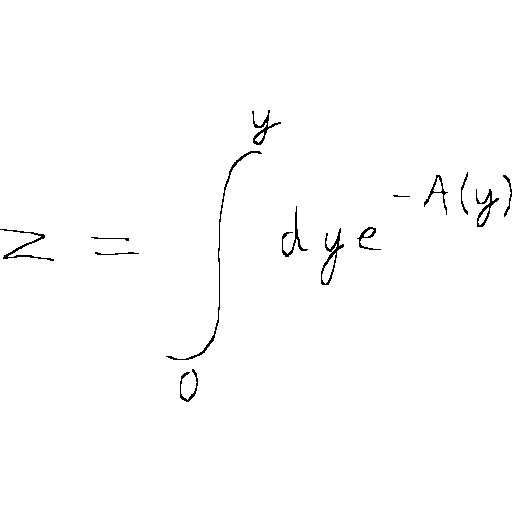 z = \int_{0}^{y} dy e^{-A(y)}